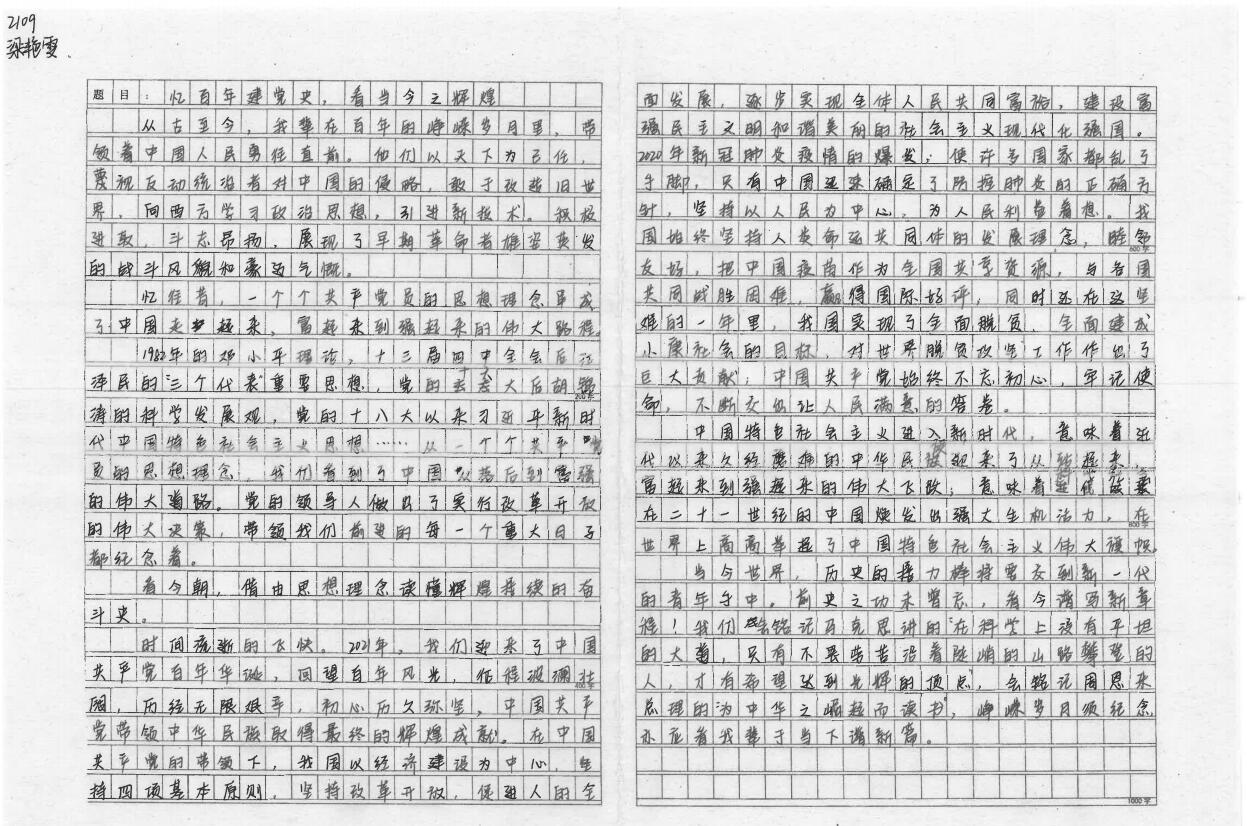 2109
梁艳雪.
题目：忆百年建党史，看当今之辉煌
从古至今，我辈在百年的峥嵘岁月里，带
领着中国人民勇往直前。他们以天下为己任，
蔑视反动统治者对中国的侵略，敢于改造旧世
界，向西方学习政治思想，引进新技术。积极
进取，斗志昂扬，展现了早期革命者雄姿英发
的战斗风貌和豪迈气慨。
忆往昔，一个个共产党员的思想理念串成
了中国走起来，富起来到强起来的伟大路程。
1982年的邓小平理论，十三届四中全会后江
泽民的"三个代表"重要思想，党的十六大后胡锦
涛的科学发展观，党的十八大以来习近平新时
代中国特色社会主义思想……从一个个共产党
员的思想理念，我们看到了中国从落后到富强
的伟大道路。党的领导人做出了实行改革开放
的伟大决策，带领我们前进的每一个重大日子
都纪念着。
看今朝，借由思想理念读懂辉煌接续的奋
斗史。
时间流逝的飞快。2021年，我们迎来了中国
共产党百年华诞，回望百年风光，征程波澜壮
阔，历经无限艰辛，初心历久弥坚，中国共产
党带领中华民族取得最终的辉煌成就。在中国
共产党的带领下，我国以经济建设为中心，坚
持四项基本原则，坚持改革开放，促进人的全
200字
400字
面发展，逐步实现全体人民共同富裕，建设富
强民主文明和谐美丽的社会主义现代化强国。
2020年新冠肺炎疫情的爆发；使许多国家都乱了
手脚，只有中国迅速确定了防控肺炎的正确方
针，坚持以人民为中心，为人民利益着想。我
国始终坚持人类命运共同体的发展理念，睦邻
友好，把中国疫苗作为全国共享资源，与各国
共同战胜困难，赢得国际好评，同时还在这坚
难的一年里，我国实现了全面脱贫、全面建成
小康社会的目标，对世界脱贫攻坚工作作出了
巨大贡献；中国共产党始终不忘初心，牢记使
命，不断交出让人民满意的答卷。
中国特色社会主义进入新时代，意味着近
代以来久经磨难的中华民族迎来了从站起来、
富起来到强起来的伟大飞跃；意味着
在二十一世纪的中国焕发出强大生机活力，在
世界上高高举起了中国特色社会主义伟大旗帜。
当今世界，历史的接力棒将需交到新一代
的青年手中。前史之功未曾忘，看今谱写新章
程！我们会铭记马克思讲的"在科学上没有平坦
的大道，只有不畏劳苦沿着陡峭的山路攀登的
人，才有希望达到光辉的顶点"，会铭记周恩来
总理的"为中华之崛起而读书"，峥嵘岁月须纪念
亦应看我辈于当下谱新篇。
600字
800字
1000字